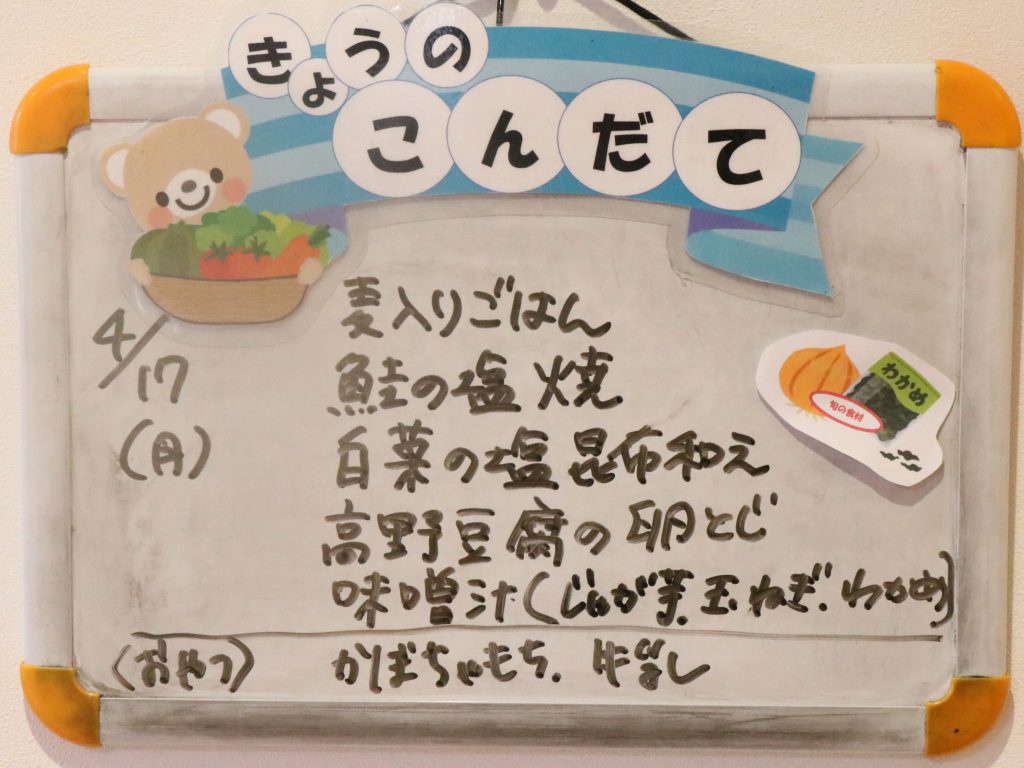 きょうの
こんだて
4/17
(月)
麦入りごはん
鮭の塩焼
白菜の塩昆布和え
高野豆腐の卵とじ
味噌汁(じゃが芋.玉ねぎ.わかめ)
(おやつ)
かぼちゃもち. 牛乳
わかめ
旬の食材